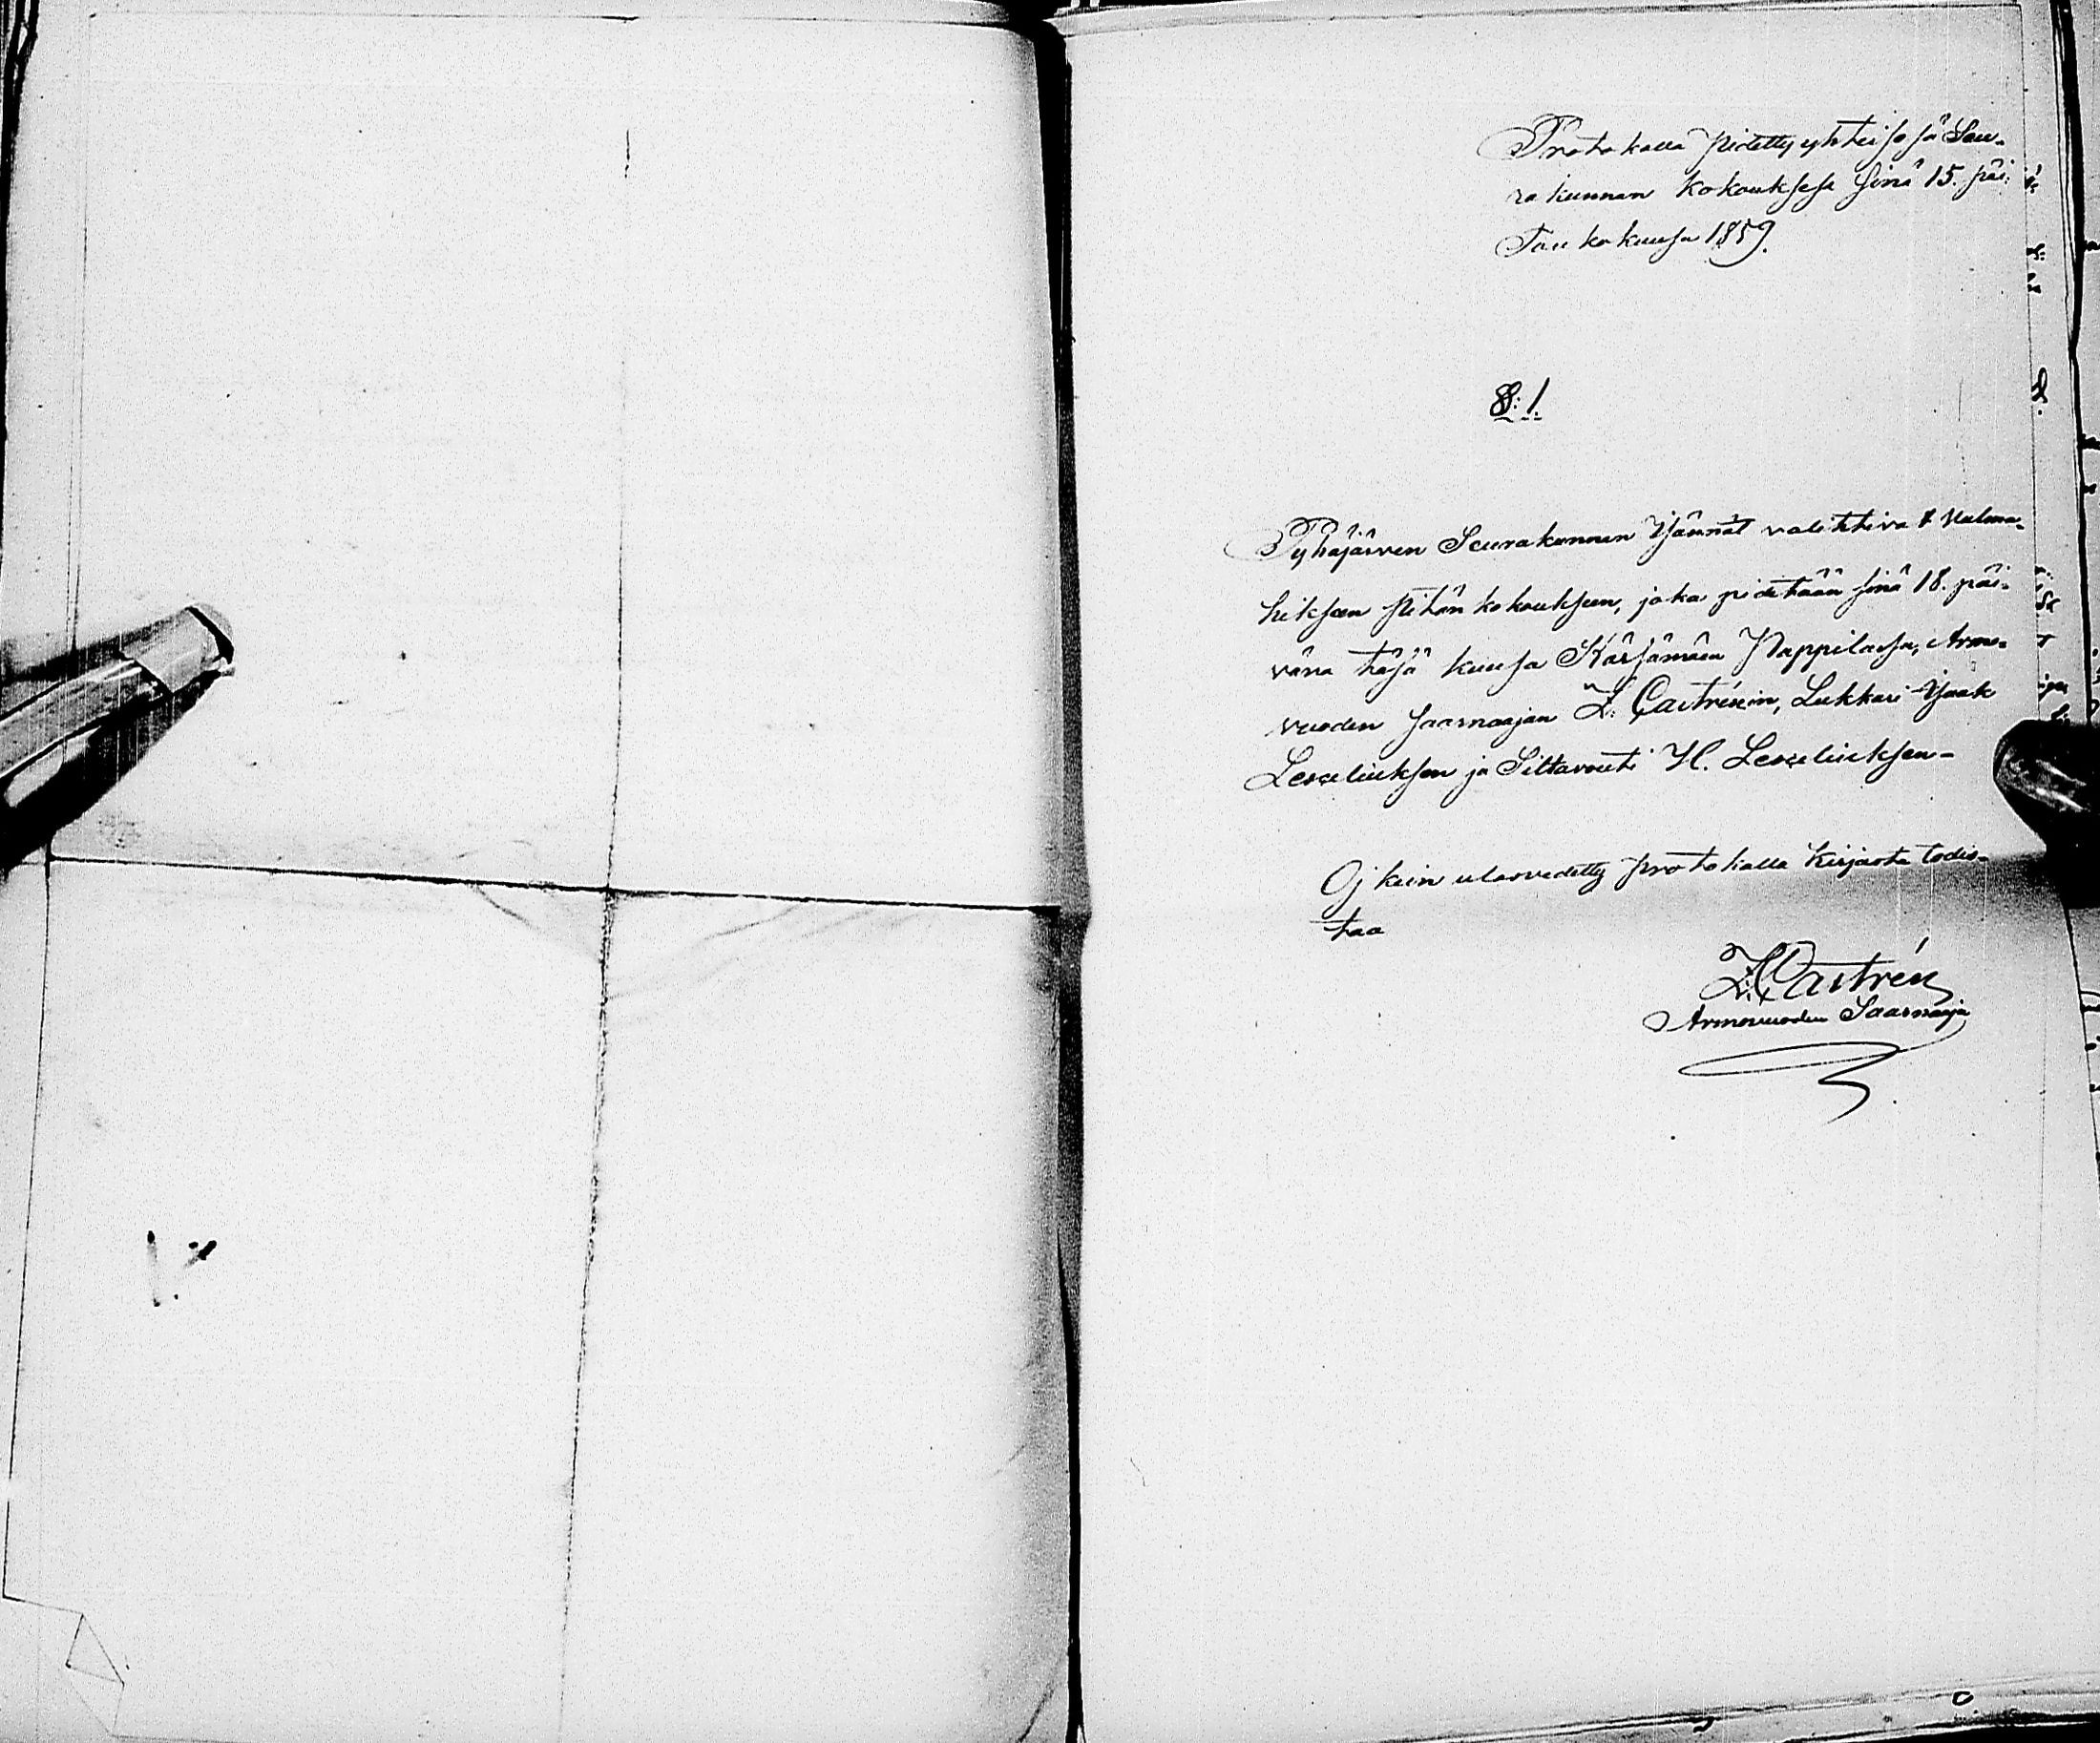 Protokalla pidetty yhteisesä Seu-
rakunnan kokouksesa sinä 15. päi:
Toukokuusa 1859.
§: 1.
Pyhäjärven Seurakunnan Isännät valitttivat
heiksen siihen kokoukseen, joka pidetään sinä 18. päi-
vänä täsä kuusa Kärsämäen Pappilassa, Armo-
vuoden Saarnaajan Z: Castrénin, Lukkari Isaak
Lesceliuksen ja Siltavouti H. Lesceliuksen-
Oikein ulosvedetty protokalla kirjasta todis-
taa
Z: Castrén
Armovuoden Saarnaaja